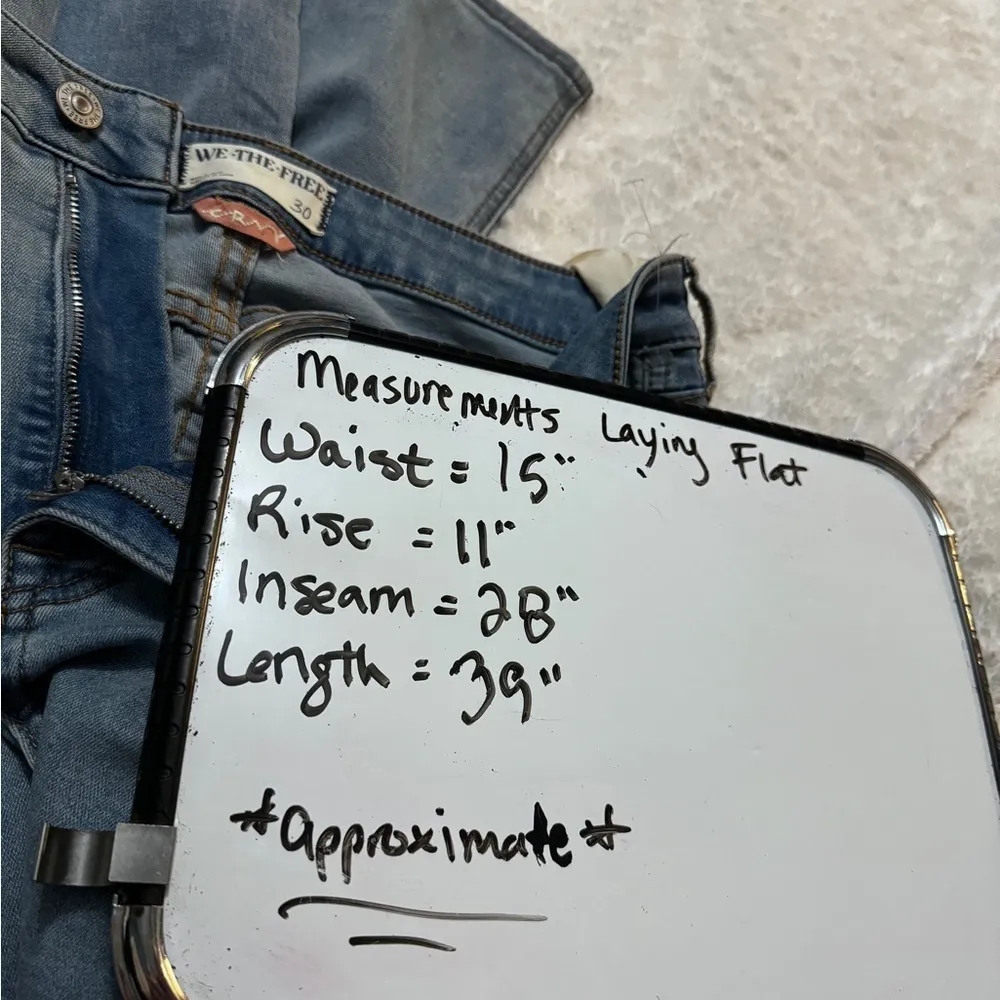 WE·THE·FREE
30
CRVY
Measurements Laying Flat
Waist = 15"
Rise = 11"
Inseam = 28"
Length = 39"
*approximate*